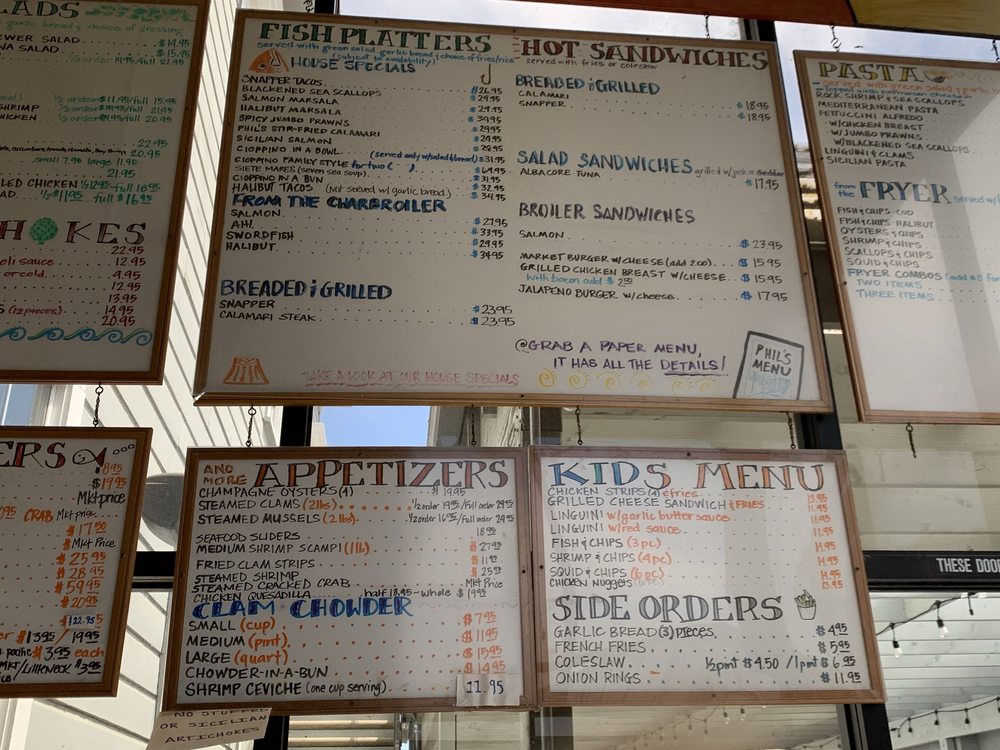 LADS
garlic bread & choice of dressing
EWER SALAD $19.95
NA SALAD $15.95
½ order 14.95/full 21.95
½ order $11.95/full 15.95
SHRIMP
CHICKEN ½ order $14.95/full 20.95
22.95
20.95
small 7.95 large 11.95
21.95
LED CHICKEN ½ 12.95 full 18.95
AD ½ $11.95 full $16.95
HOKES
22.95
oli sauce 12.95
or cold 9.95
12.95
13.95
S (12 pieces) 14.95
20.95
FISH PLATTERS
served with green salad, garlic bread & choice of fries/rice
(subject to availability)
HOUSE SPECIALS
SNAPPER TACOS $26.95
BLACKENED SEA SCALLOPS $29.95
SALMON MARSALA $29.95
HALIBUT MARSALA $34.95
SPICY JUMBO PRAWNS $29.95
PHIL'S STIR-FRIED CALAMARI $24.95
SICILIAN SALMON $29.95
CIOPPINO IN A BOWL (served only w/salad & bread) $31.95
CIOPPINO FAMILY STYLE for two
SIETE MARES (seven sea soup)
CIOPPINO IN A BUN $32.95
HALIBUT TACOS (Not served w/ garlic bread) $34.95
FROM THE CHARBROILER
SALMON $27.95
AHI $33.95
SWORDFISH $29.95
HALIBUT $34.95
BREADED & GRILLED
SNAPPER $23.95
CALAMARI STEAK $23.95
TAKE A LOOK AT OUR HOUSE SPECIALS
HOT SANDWICHES
served with fries or coleslaw
BREADED & GRILLED
CALAMARI $18.95
SNAPPER $18.95
SALAD SANDWICHES grilled w/ jack or cheddar
ALBACORE TUNA $17.95
BROILER SANDWICHES
SALMON $23.95
MARKET BURGER W/CHEESE (add 2.00) $15.95
GRILLED CHICKEN BREAST W/CHEESE $15.95
with bacon add $2.00
JALAPENO BURGER W/cheese $17.95
GRAB A PAPER MENU,
IT HAS ALL THE DETAILS!
PHIL'S
MENU
PASTA
served with green salad & garlic b
topped with parmesan cheese
ROCK SHRIMP & SEA SCALLOPS
MEDITERRANEAN PASTA
FETTUCCINI ALFREDO
W/CHICKEN BREAST
W/JUMBO PRAWNS
W/BLACKENED SEA SCALLOPS
LINGUINI & CLAMS
SICILIAN PASTA
from the FRYER served w/
FISH & CHIPS - COD
FISH & CHIPS - HALIBUT
OYSTERS & CHIPS
SHRIMP & CHIPS
SCALLOPS & CHIPS
SQUID & CHIPS
FRYER COMBOS (add $5 fo
TWO ITEMS
THREE ITEMS
ERS
8.95
$19.95
Mkt price
CRAB Mkt price
$17.50
Mkt Price
$25.95
$28.95
$59.95
$20.95
$122.95
$13.95/19.95
$3.95 each
MKT/Littleneck $3.95
AND MORE APPETIZERS
CHAMPAGNE OYSTERS (4) $19.95
STEAMED CLAMS (2lbs) ½ order 19.95/Full order 29.95
STEAMED MUSSELS (2lbs) ½ order 16.95/full order 24.95
SEAFOOD SLIDERS 18.95
MEDIUM SHRIMP SCAMPI (1lb) $27.95
FRIED CLAM STRIPS $11.95
STEAMED SHRIMP $25.95
STEAMED CRACKED CRAB Mkt Price
CHICKEN QUESADILLA half 13.95 - whole $19.95
CLAM CHOWDER
SMALL (cup) $7.95
MEDIUM (pint) $11.95
LARGE (quart) $15.95
CHOWDER-IN-A-BUN $14.95
SHRIMP CEVICHE (one cup serving) 11.95
KIDS MENU
CHICKEN STRIPS (4) & fries 13.95
GRILLED CHEESE SANDWICH & FRIES 11.95
LINGUINI w/garlic butter sauce 11.95
LINGUINI w/red sauce 11.95
FISH & CHIPS (3 pc) 14.95
SHRIMP & CHIPS (4 pc) 14.95
SQUID & CHIPS (6 pc) 14.95
CHICKEN NUGGETS 13.95
SIDE ORDERS
GARLIC BREAD (3) PIECES $4.95
FRENCH FRIES $5.95
COLESLAW ½ pint $4.50 / 1 pint $6.95
ONION RINGS $11.95
THESE DOO
NO STUFFED
OR SICILIAN
ARTICHOKES